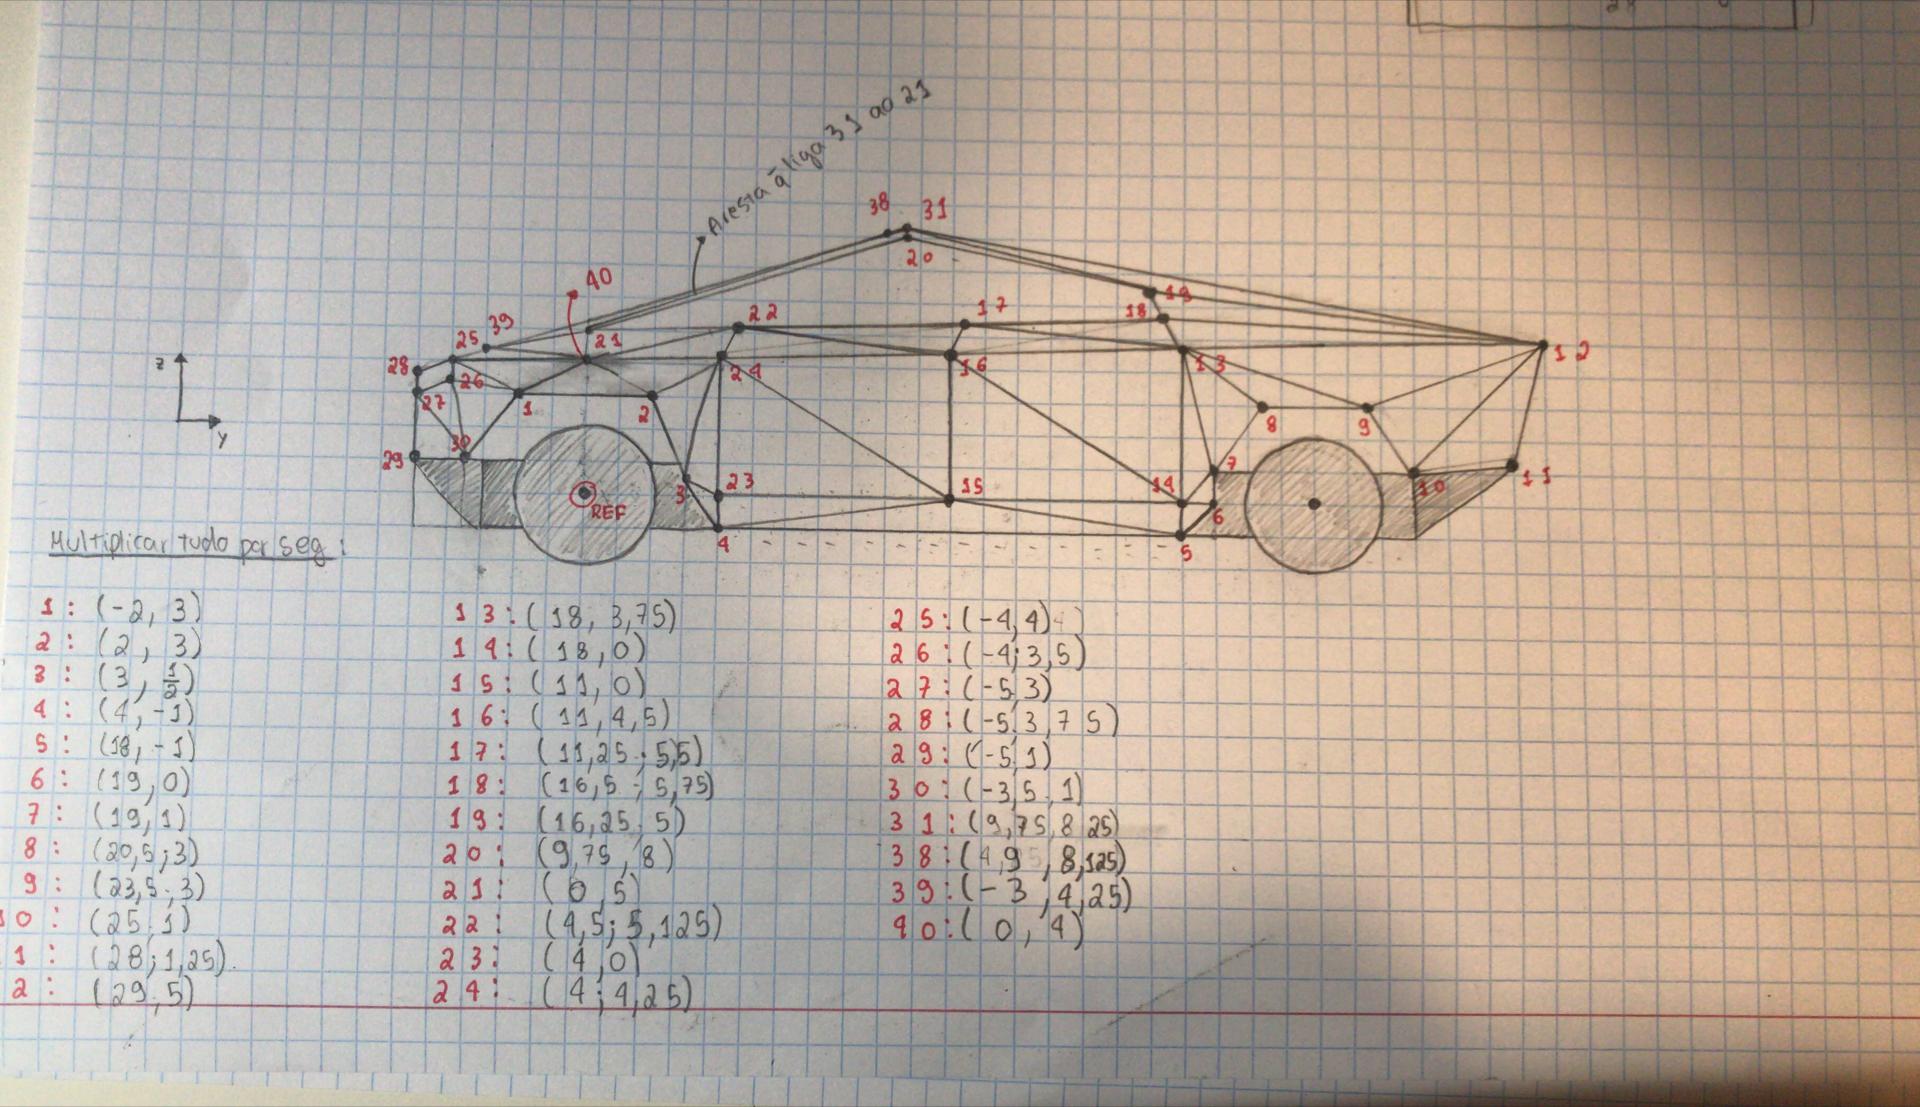 Aresta q̄ liga 31 ao 21
38 31
20
40
22 17 19
18
39
25 21
28 24 16 13 12
26
27 1 2 8 9
30
29 3 23 15 14 7 10 11
REF 6
4 5
z
y
Multiplicar tudo por seg:
1: (-2, 3)
2: (2, 3)
3: (3, 1/2)
4: (4, -1)
5: (18, -1)
6: (19, 0)
7: (19, 1)
8: (20,5; 3)
9: (23,5; 3)
10: (25, 1)
1: (28; 1,25)
2: (29, 5)
13: (18; 3,75)
14: (18, 0)
15: (11, 0)
16: (11, 4,5)
17: (11,25; 5,5)
18: (16,5; 5,75)
19: (16,25; 5)
20: (9,75, 8)
21: (0, 5)
22: (4,5; 5,125)
23: (4, 0)
24: (4; 4,25)
25: (-4, 4)
26: (-4; 3,5)
27: (-5, 3)
28: (-5, 3,75)
29: (-5, 1)
30: (-3,5, 1)
31: (9,75, 8,25)
38: (4,9 , 8,125)
39: (-3, 4,25)
40: (0, 4)